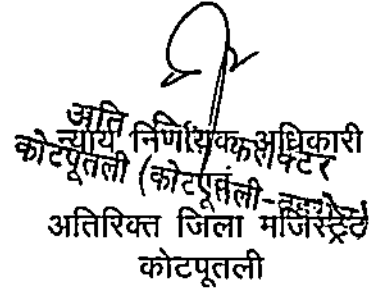 अति कलक्टर
न्याय निर्णायक अधिकारी
कोटपूतली (कोटपूतली-
अतिरिक्त जिला मजिस्ट्रेट
कोटपूतली